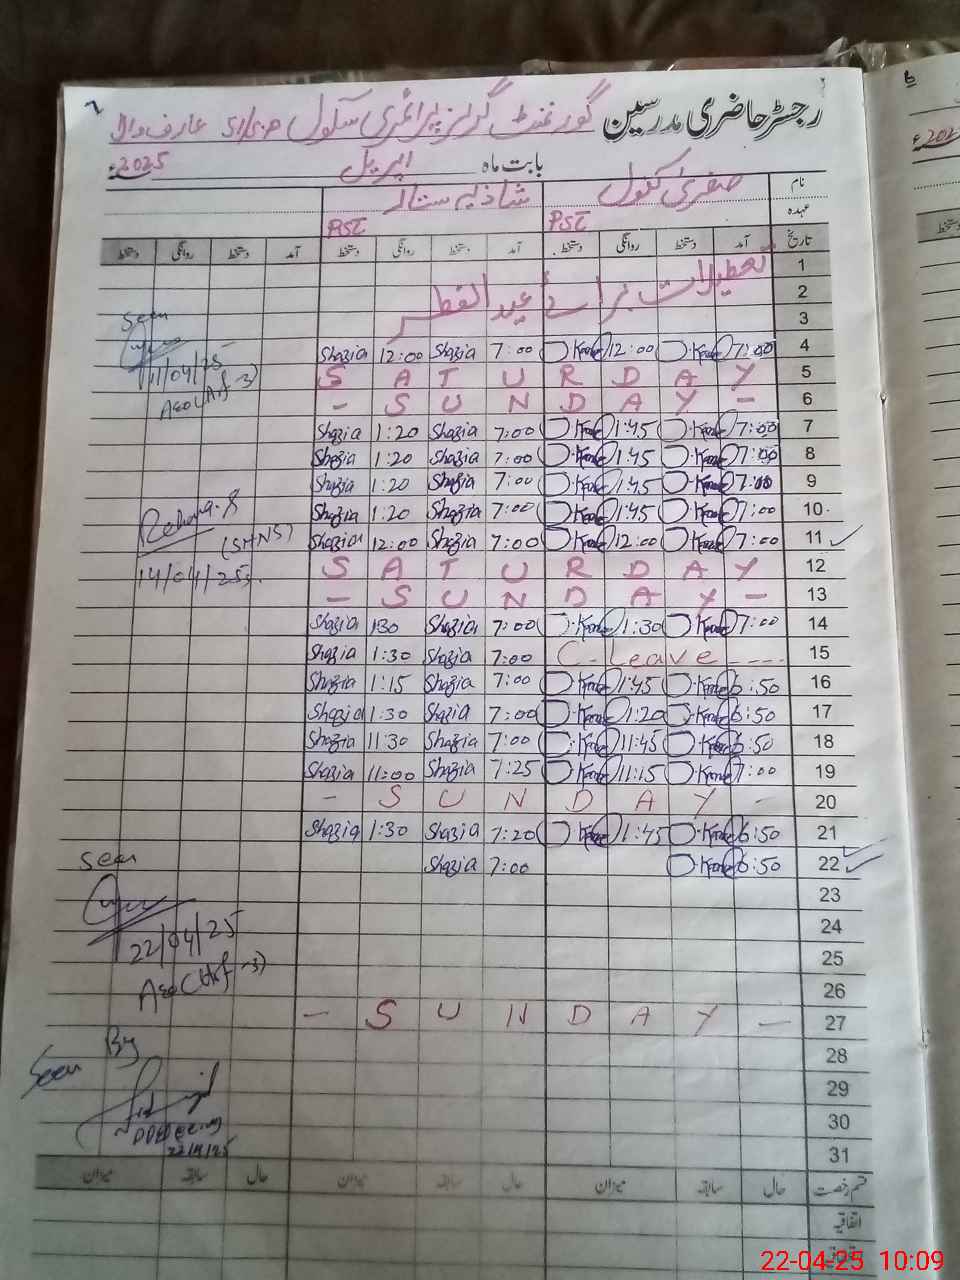 رجسٹر حاضری مدرسین گورنمنٹ گرلز پرائمری سکول عارف والا
بابت ماہ اپریل 2025ء
نام صغریٰ کنول شازیہ ستار
عہدہ PST PST
تاریخ آمد دستخط روانگی دستخط آمد دستخط روانگی دستخط آمد دستخط روانگی دستخط
1 تعطیلات برائے عید الفطر
2
3
Shazia 12:00 Shazia 7:00 Kanwal 12:00 Kanwal 7:00 4
S A T U R D A Y 5
- S U N D A Y - 6
Shazia 1:20 Shazia 7:00 Kanwal 1:45 Kanwal 7:00 7
Shazia 1:20 Shazia 7:00 Kanwal 1:45 Kanwal 7:00 8
Shazia 1:20 Shazia 7:00 Kanwal 1:45 Kanwal 7:00 9
Shazia 1:20 Shazia 7:00 Kanwal 1:45 Kanwal 7:00 10
Shazia 12:00 Shazia 7:00 Kanwal 12:00 Kanwal 7:00 11
S A T U R D A Y 12
- S U N D A Y - 13
Shazia 130 Shazia 7:00 Kanwal 1:30 Kanwal 7:00 14
Shazia 1:30 Shazia 7:00 C- Leave ---- 15
Shazia 1:15 Shazia 7:00 Kanwal 1:45 Kanwal 6:50 16
Shazia 1:30 Shazia 7:00 Kanwal 1:20 Kanwal 6:50 17
Shazia 11:30 Shazia 7:00 Kanwal 11:45 Kanwal 6:50 18
Shazia 11:00 Shazia 7:25 Kanwal 11:15 Kanwal 7:00 19
- S U N D A Y - 20
Shazia 1:30 Shazia 7:20 Kanwal 1:45 Kanwal 6:50 21
Shazia 7:00 Kanwal 6:50 22
23
24
25
26
- S U N D A Y - 27
28
29
30
31
Seen
11/04/25
Aeo (Arf-3)
Rehana.
(SHNS)
14/04/25
Seen
22/04/25
Aeo (Arf-3)
Seen By
22/4/25
قسم رخصت حال سابقہ میزان حال سابقہ میزان حال سابقہ میزان
اتفاقیہ
2025
22-04-25 10:09